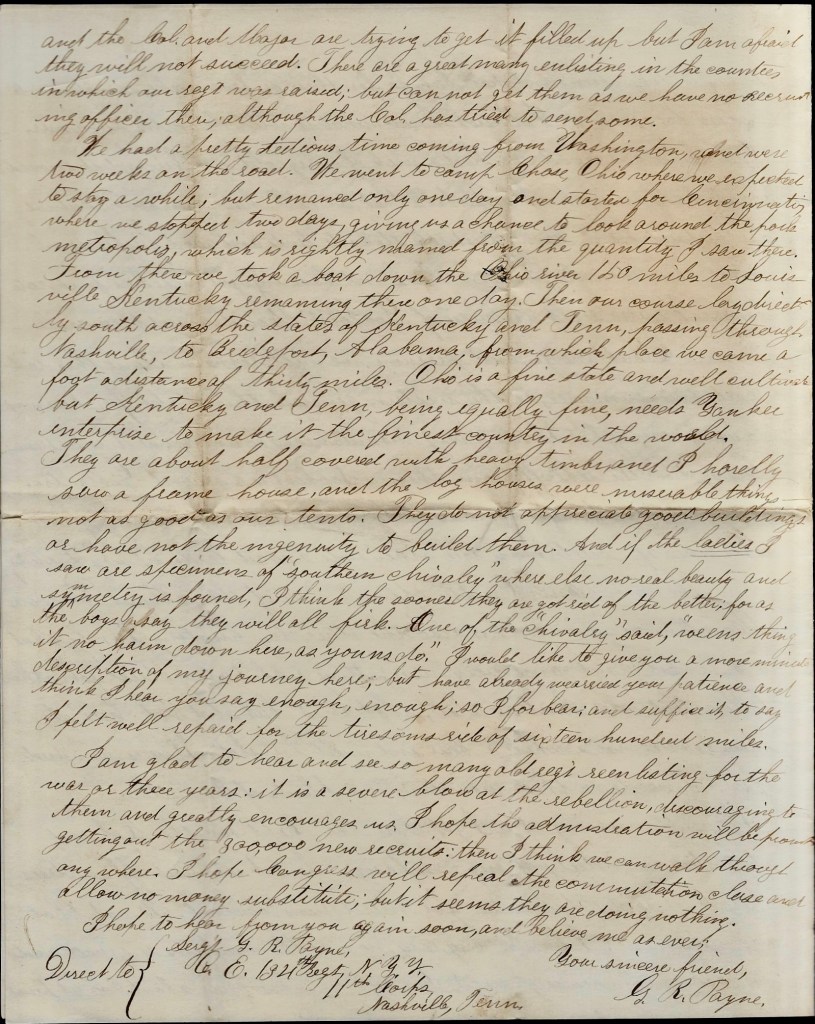 and the Col. and Major are trying to get it filled up but I am afraid
they will not succeed. There are a great many enlisting in the counties
in which our regt was raised; but can not get them as we have no recruit
ing officer there, although the Col. has tried to send some.
We had a pretty tedious time coming from Washington, and were
two weeks on the road. We went to camp Chase, Ohio where we expected
to stay a while; but remained only one day and started for Cincinnati,
where we stopped two days, giving us a chance to look around the pork
metropolis, which is rightly named from the quantity I saw there.
From there we took a boat down the Ohio river 140 miles to Louis-
ville Kentucky remaining there one day. Then our course lay direct
ly south across the states of Kentucky and Tenn, passing through
Nashville, to Bridgeport, Alabama, from which place we came a
foot a distance of thirty miles. Ohio is a fine state and well cultivate
but Kentucky and Tenn, being equally fine, needs Yankee
enterprise to make it the finest country in the world.
They are about half covered with heavy timber and I horelly
saw a frame house, and the log houses were miserable things
not as good as our tents. They do not appreciate good buildings
or have not the ingenuity to build them. And if the ladies I
saw are specimens of "southern chivalry" where else no real beauty and
symmetry is found, I think the sooner they are got rid of the better; for as
the boys say they will all fisk. One of the "chivalry" said, "weens thing
it no harm down here, as youns do". I would like to give you a more minute
description of my journey here, but have already wearried your patience and
think I hear you say enough, enough; so I forbear; and suffice it to say
I felt well repaid for the tiresome ride of sixteen hundred miles.
I am glad to hear and see so many old regts reenlisting for the
war or three years: it is a severe blow at the rebellion, discouraging to
them and greatly encourages us. I hope the admistration will be prompt
getting out the 300,000 new recruits: then I think we can walk through
any where. I hope Congress will repeal the commutation clase and
allow no money substitute; but it seems they are doing nothing.
I hope to hear from you again soon, and believe me as ever;
Your sincere friend,
G. R. Payne.
Direct to
Sergt G. R. Payne,
Co. E. 134th Regt, N. Y. V.
11th Corps,
Nashville, Tenn.